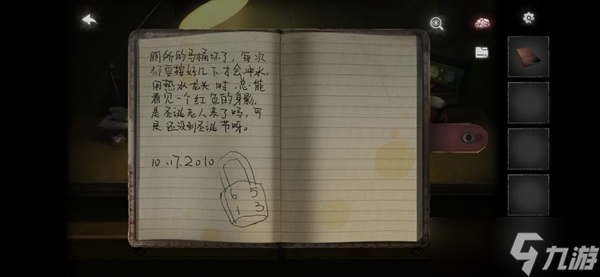 厕所的马桶坏了，每次
都要按好几下才会冲水，
用热水龙头时，总能
看见一个红色的身影，
是圣诞老人来了吗，可
是还没到圣诞节呀。
10.17.2010
6 5
1 3
九游